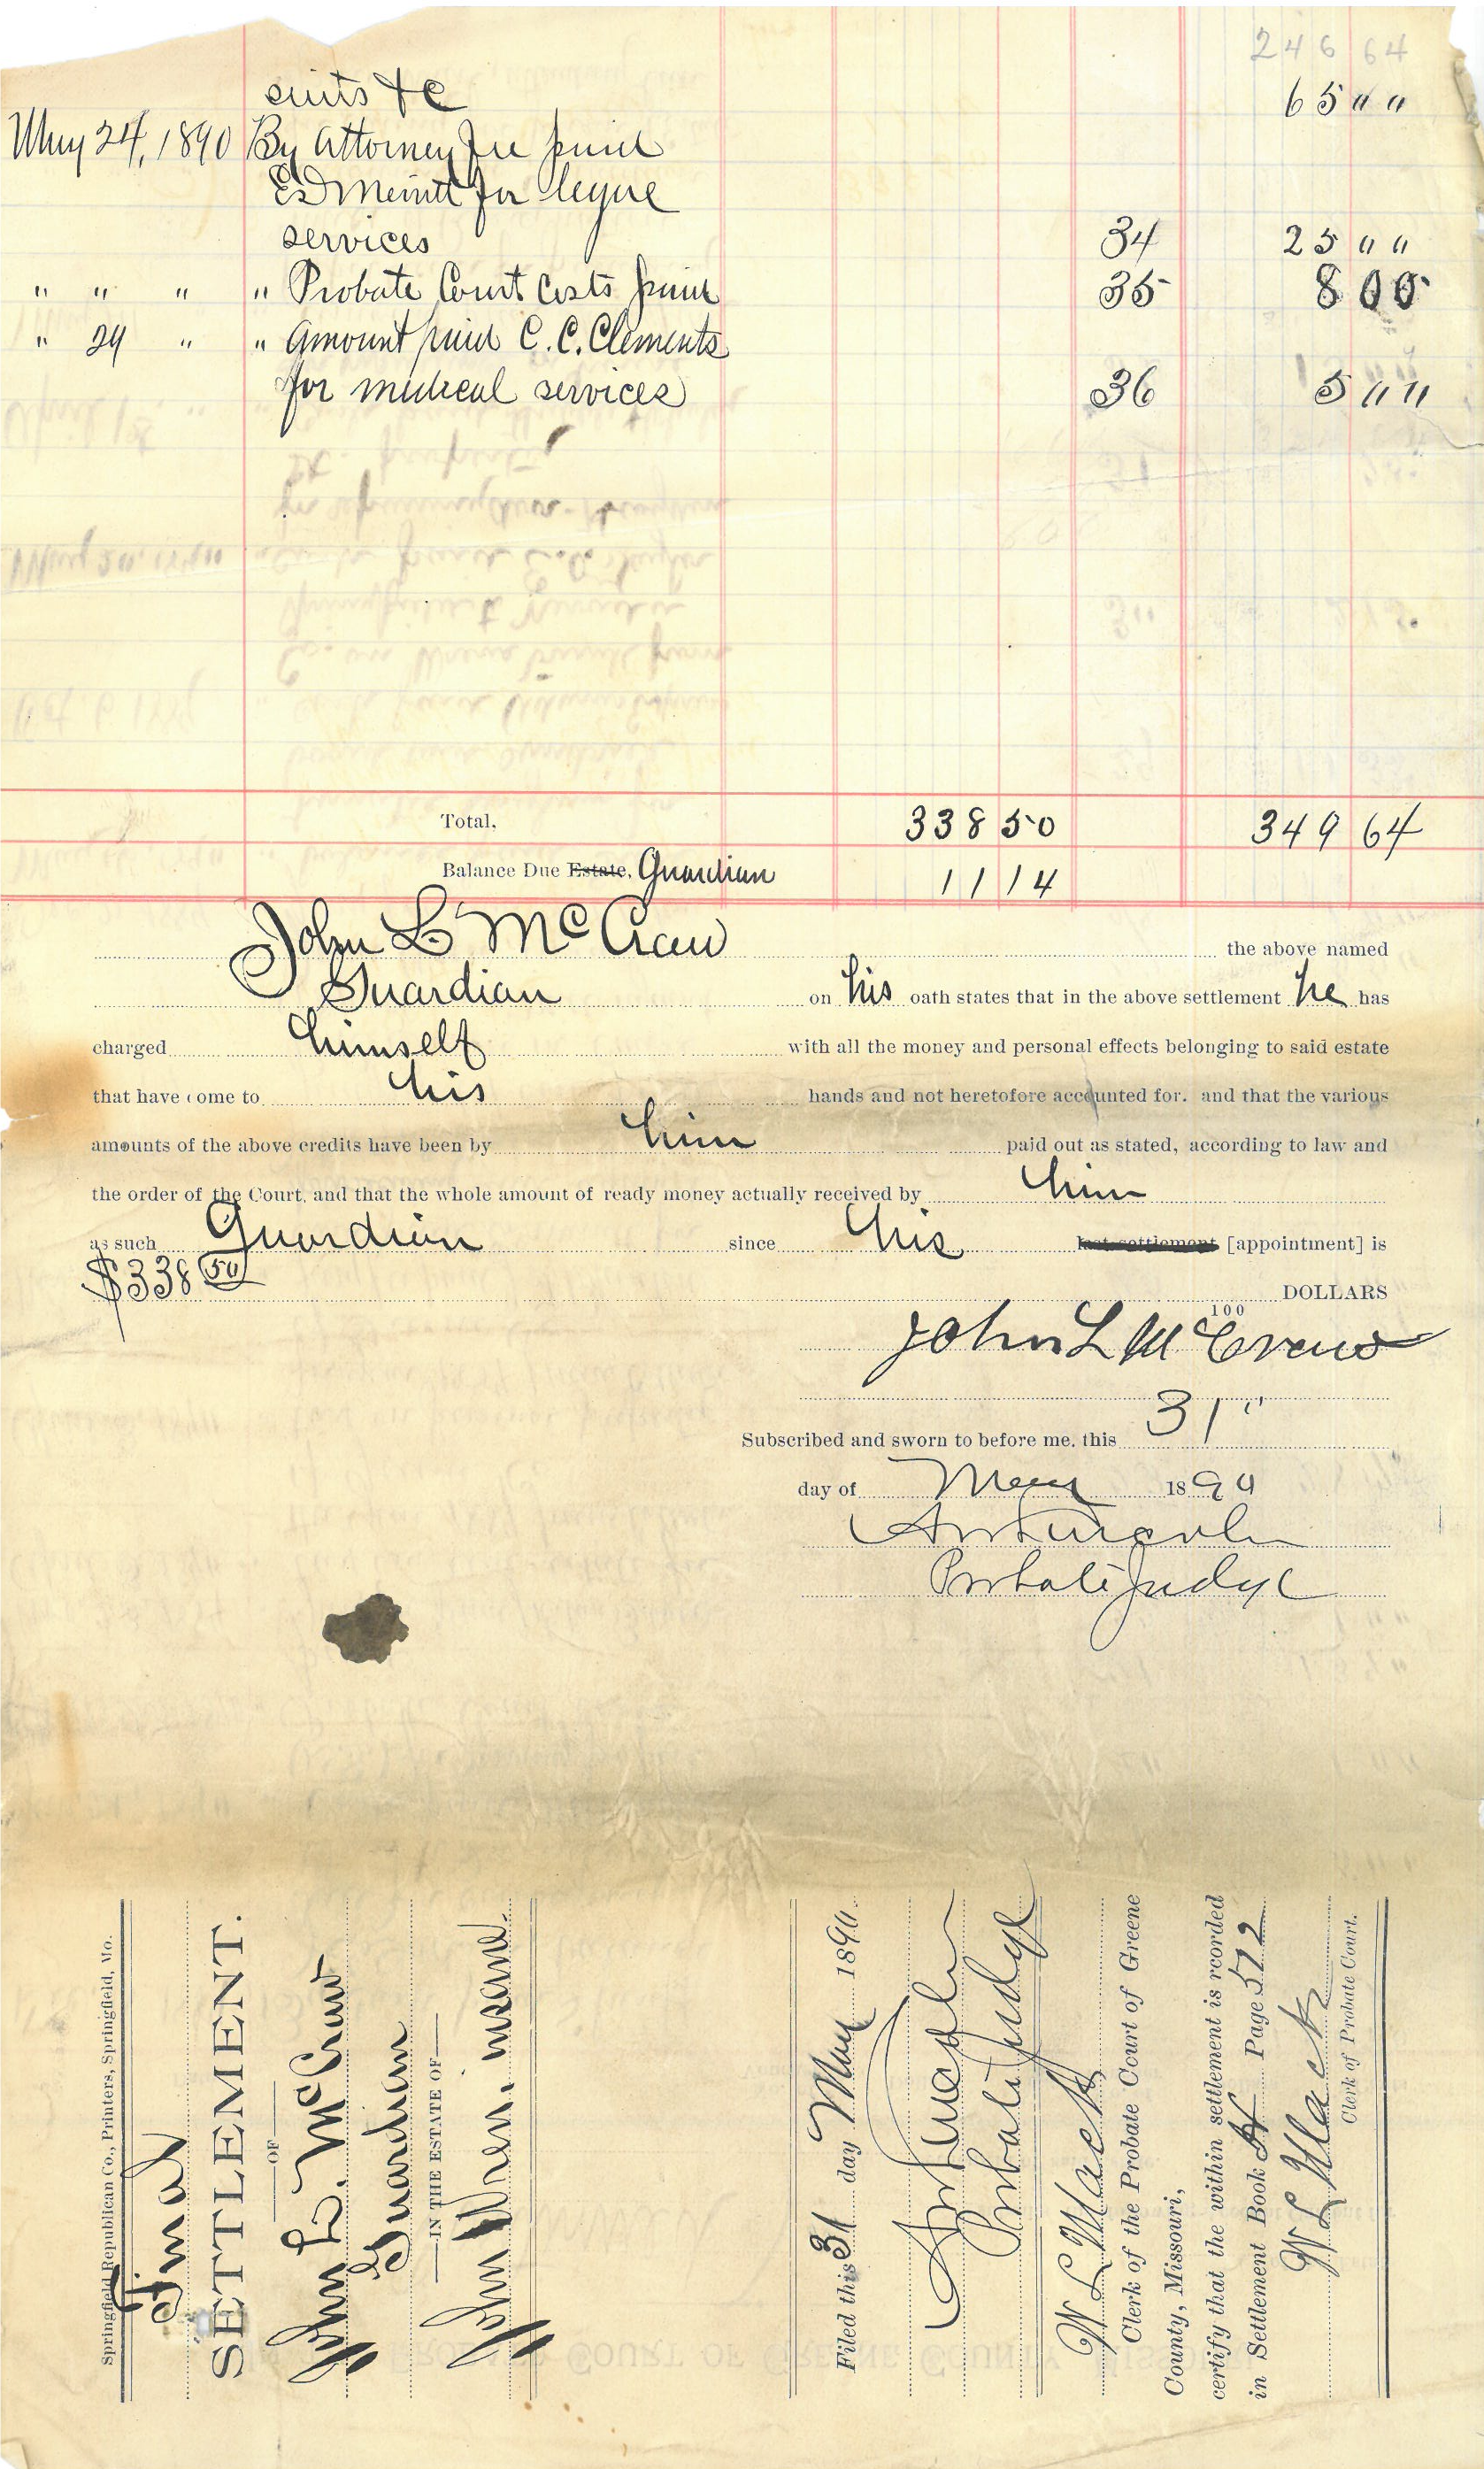 246 64
suits &c 65 " "
May 24, 1890 By Attorney fee paid
Ed Merritt for legal
services 34 25 " "
" " " " Probate Court Costs paid 35 8 00
" 24 " " Amount paid C. C. Clements
for medical services 36 5 " "
Total, 338 50 349 64
Balance Due Estate, Guardian 11 14
John L McCraw the above named
Guardian on his oath states that in the above settlement he has
charged himself with all the money and personal effects belonging to said estate
that have come to his hands and not heretofore accounted for. and that the various
amounts of the above credits have been by him paid out as stated, according to law and
the order of the Court, and that the whole amount of ready money actually received by him
as such Guardian since his last settlement [appointment] is
$338 50
DOLLARS
100
John L McCraw
Subscribed and sworn to before me, this 31 "
day of May 1890
Probate Judge
Springfield Republican Co., Printers, Springfield, Mo.
Final
SETTLEMENT.
OF
John L. McCraw
Guardian
IN THE ESTATE OF
John Wren, insane.
Filed this 31 day May 1890.
Probate Judge
W L Mack
Clerk of the Probate Court of Greene
County, Missouri,
certify that the within settlement is recorded
in Settlement Book N Page 572
W L Mack
Clerk of Probate Court.